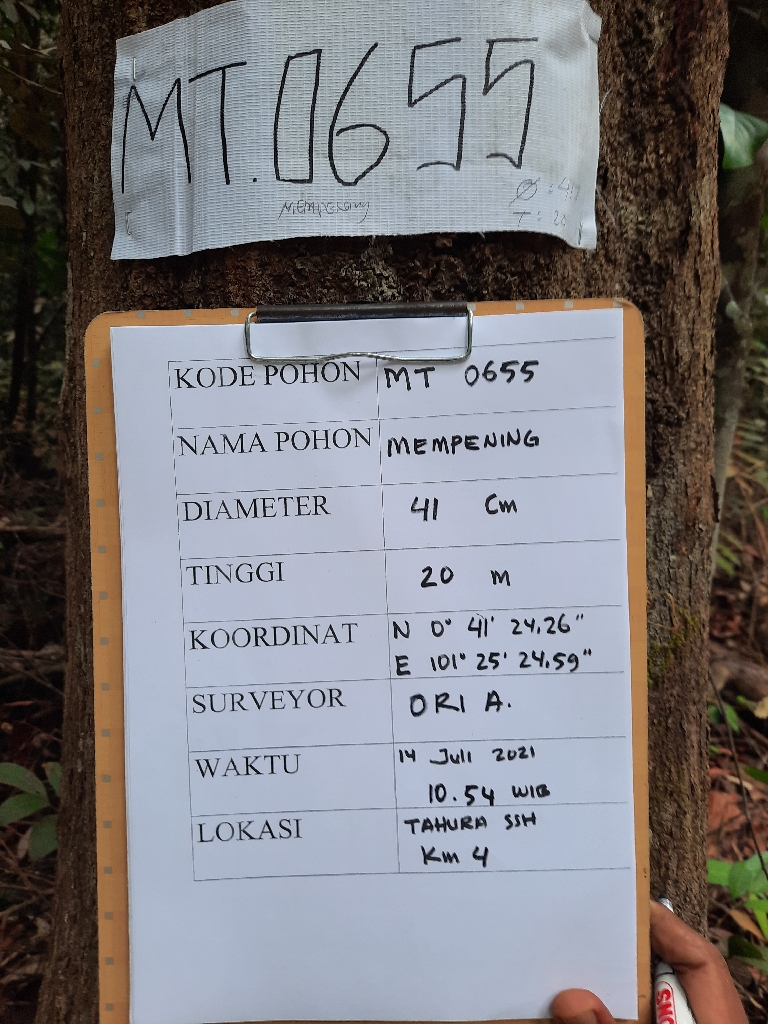 MT.0655
Mempening
T: 20
KODE POHON MT 0655
NAMA POHON MEMPENING
DIAMETER 41 Cm
TINGGI 20 m
KOORDINAT N 0° 41' 24.26"
E 101° 25' 24.59"
SURVEYOR ORI A.
WAKTU 14 Juli 2021
10.54 WIB
LOKASI TAHURA SSH
Km 4